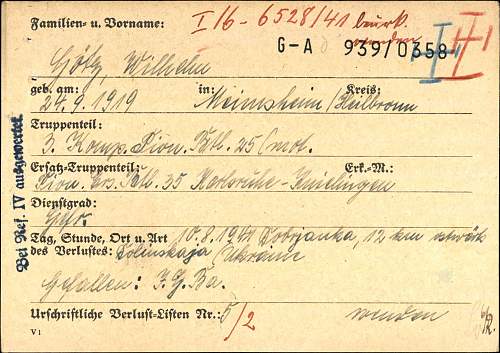 Familien- u. Vorname:
I/6-6528/41 beurk.
werden
G-A 939/0358
Götz, Wilhelm
geb. am: in: Kreis:
24.9.1919 Meimsheim/Heilbronn
Truppenteil:
3. Komp. Pion. Btl. 25 (mot.
Ersatz-Truppenteil: Erk.-M.:
Pion. Ers. Btl. 35 Karlsruhe-Knielingen
Dienstgrad:
Gefr.
Tag, Stunde, Ort u. Art 10.8.1941 Dobrjanka, 12 km ostwärts
des Verlustes: Dolinskaja/Ukraine
Gefallen: I.G. Ba.
Urschriftliche Verlust-Listen Nr.: 5/2
wenden
V1
Bei Ref. IV ausgewertet